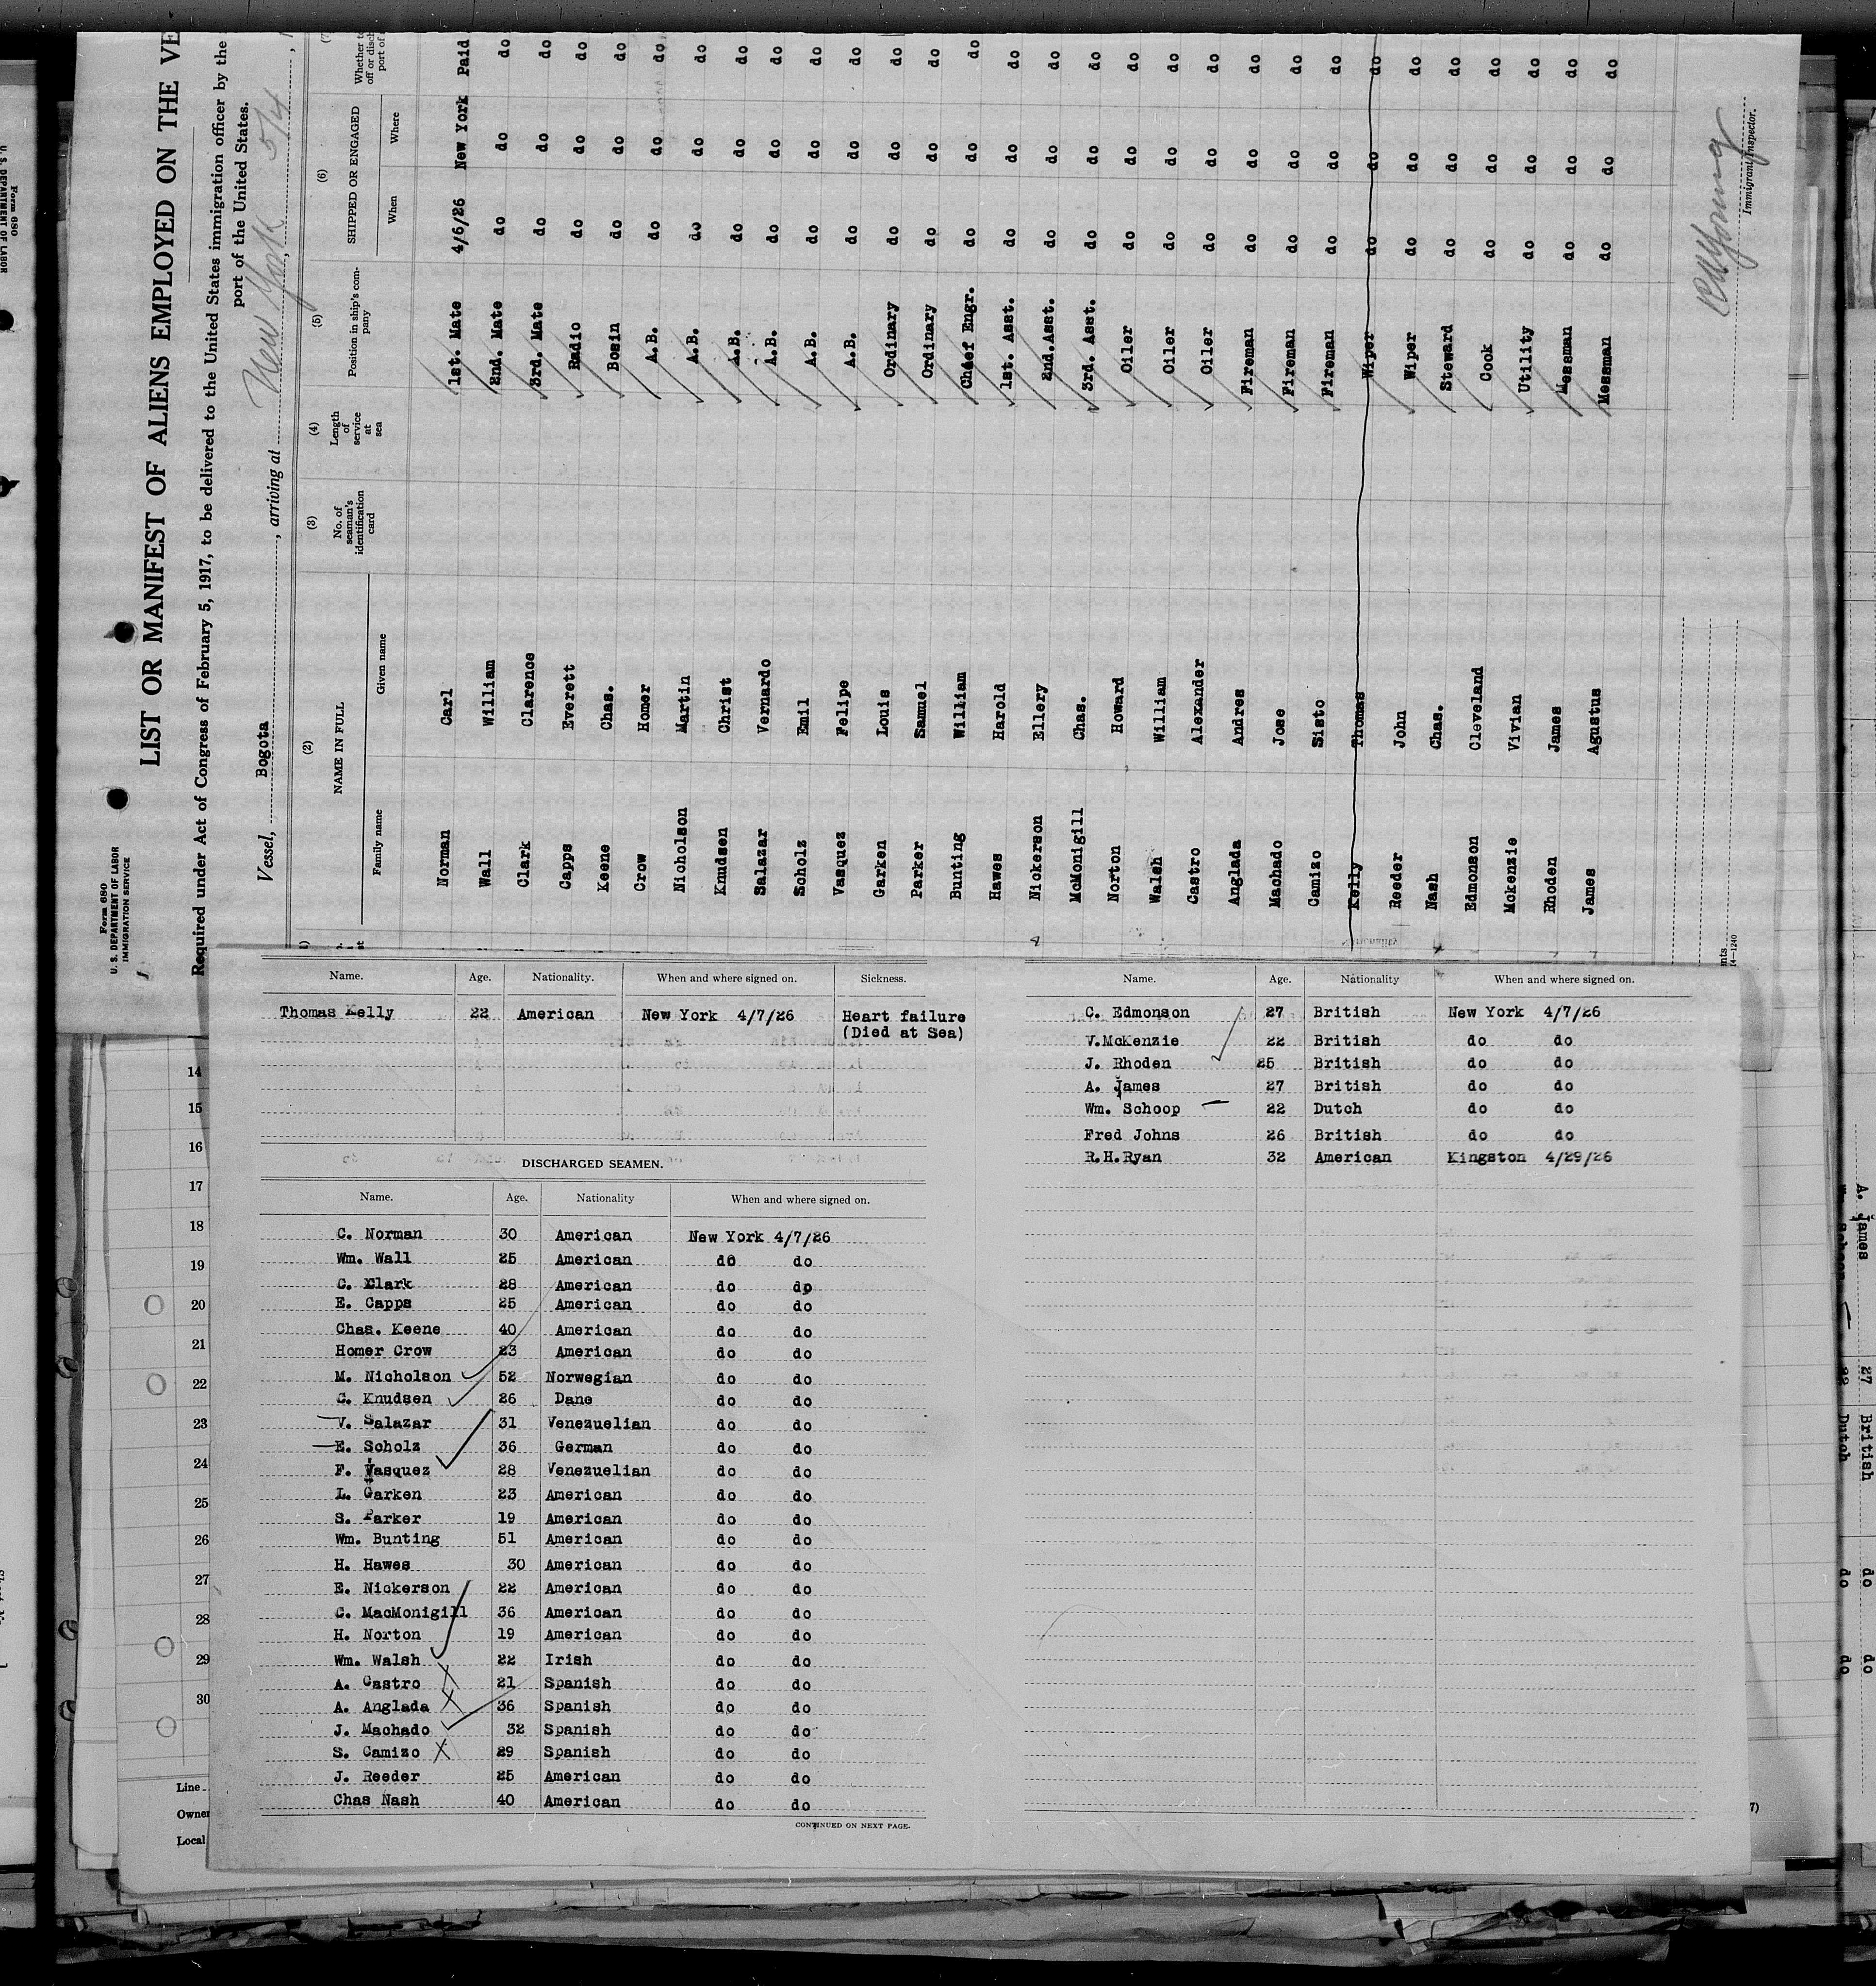 Form 680
U. S. DEPARTMENT OF LABOR
IMMIGRATION SERVICE
LIST OR MANIFEST OF ALIENS EMPLOYED ON THE VE
Required under Act of Congress of February 5, 1917, to be delivered to the United States immigration officer by the
port of the United States.
Vessel, Bogota, arriving at New York 5/4
(2) (3) (4) (5) (6)
NAME IN FULL No. of seaman's identification card Length of service at sea Position in ship's company SHIPPED OR ENGAGED
Family name Given name When Where
Norman Carl 1st. Mate 4/6/26 New York Paid
Wall William 2nd. Mate do do do
Clark Clarence 3rd. Mate do do do
Capps Everett Radio do do do
Keene Chas. Bosin do do do
Crow Homer A.B. do do do
Nicholson Martin A.B. do do do
Knudsen Christ A.B. do do do
Salazar Vernardo A.B. do do do
Scholz Emil A.B. do do do
Vasquez Felipe A.B. do do do
Garken Louis Ordinary do do do
Parker Samuel Ordinary do do do
Bunting William Chief Engr. do do do
Hawes Harold 1st. Asst. do do do
Nickerson Ellery 2nd. Asst. do do do
McMonigill Chas. 3rd. Asst. do do do
Norton Howard Oiler do do do
Walsh William Oiler do do do
Castro Alexander Oiler do do do
Anglada Andres Fireman do do do
Machado Jose Fireman do do do
Camizo Sisto Fireman do do do
Kelly Thomas Wiper do do do
Reeder John Wiper do do do
Nash Chas. Steward do do do
Edmonson Cleveland Cook do do do
Mckenzie Vivian Utility do do do
Rhoden James Messman do do do
James Agustus Messman do do do
Immigrant Inspector.
14—1240
Name. Age. Nationality. When and where signed on. Sickness.
Thomas Kelly 22 American New York 4/7/26 Heart failure
(Died at Sea)
DISCHARGED SEAMEN.
Name. Age. Nationality When and where signed on.
C. Norman 30 American New York 4/7/26
Wm. Wall 25 American do do
C. Clark 28 American do do
E. Capps 25 American do do
Chas. Keene 40 American do do
Homer Crow 23 American do do
M. Nicholson 52 Norwegian do do
C. Knudsen 26 Dane do do
V. Salazar 31 Venezuelian do do
E. Scholz 36 German do do
F. Vasquez 28 Venezuelian do do
L. Garken 23 American do do
S. Parker 19 American do do
Wm. Bunting 51 American do do
H. Hawes 30 American do do
E. Nickerson 22 American do do
C. MacMonigill 36 American do do
H. Norton 19 American do do
Wm. Walsh 22 Irish do do
A. Castro 21 Spanish do do
A. Anglada 36 Spanish do do
J. Machado 32 Spanish do do
S. Camizo 29 Spanish do do
J. Reeder 25 American do do
Chas Nash 40 American do do
CONTINUED ON NEXT PAGE.
Name. Age. Nationality When and where signed on.
C. Edmonson 27 British New York 4/7/26
V.McKenzie 22 British do do
J. Rhoden 25 British do do
A. James 27 British do do
Wm. Schoop 22 Dutch do do
Fred Johns 26 British do do
R.H.Ryan 32 American Kingston 4/29/26
14
15
16
17
18
19
20
21
22
23
24
25
26
27
28
29
30
Line
Owner
Local
A. James 27 British do do
22 Dutch do do